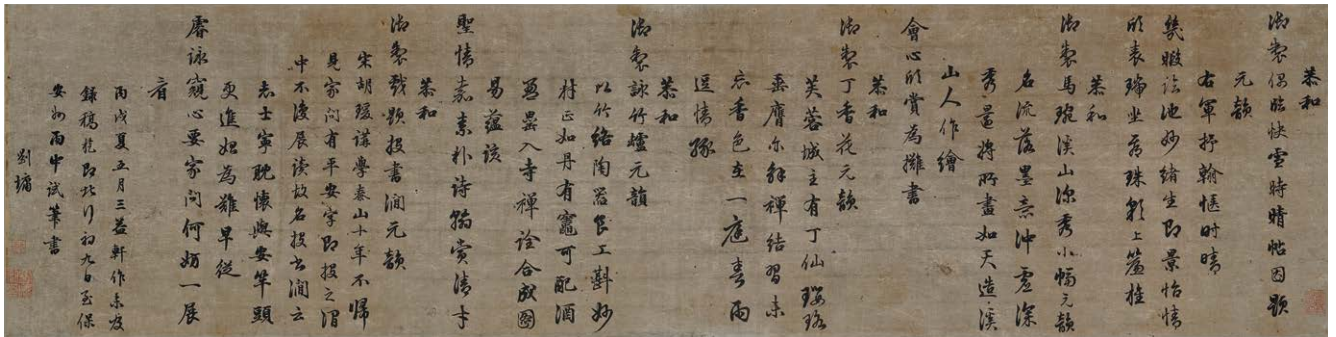 恭和
御製偶臨快雪時晴帖因題
元韻
右軍抒翰愜時晴
幾暇臨池妙緒生即景怡情
欣表瑞坐看珠彩上簷楹
恭和
御製馬琬溪山深秀小幅元韻
名流落墨意沖虛深
秀還將所畫如天造溪
山人作繪
會心欣賞為攤書
恭和
御製丁香花元韻
芙蓉城主有丁仙瓔珞
垂膺亦解禪結習未
忘香色在一庭春雨
逗情緣
恭和
御製詠竹爐元韻
以竹絡陶器良工斟妙
材正如丹有竈可配酒
為罍入寺禪詮合成圖
易蘊該
聖情嘉素朴詩賞清才
恭和
御製戲題投書澗元韻
宋胡瑗講學泰山十年不歸
見家問有平安字即投之澗
中不復展讀故名投書澗云
志士寧耽懷與安竿頭
更進始為難早從
睿詠窺心要家問何妨一展
看
丙戌夏五月三益軒作未及
錄稿即北行初九日至保
安州雨中試筆書
劉墉